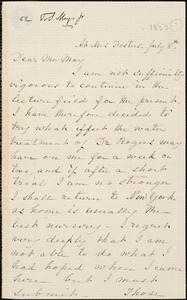 At Mrs Fosters, July 8th
Dear Mr May
I am not sufficiently
vigorous to continue in the
lecture field for the present.
I have therefore decided to
try what effect the water
treatment of Dr Rogers may
have on me for a week or
two, and if after a short
trial I am no stronger
I shall return to New York
as home is usually the
best nursery - I regret
very deeply that I am
not able to do what I
had hoped when I came
here but I must
submit. Those